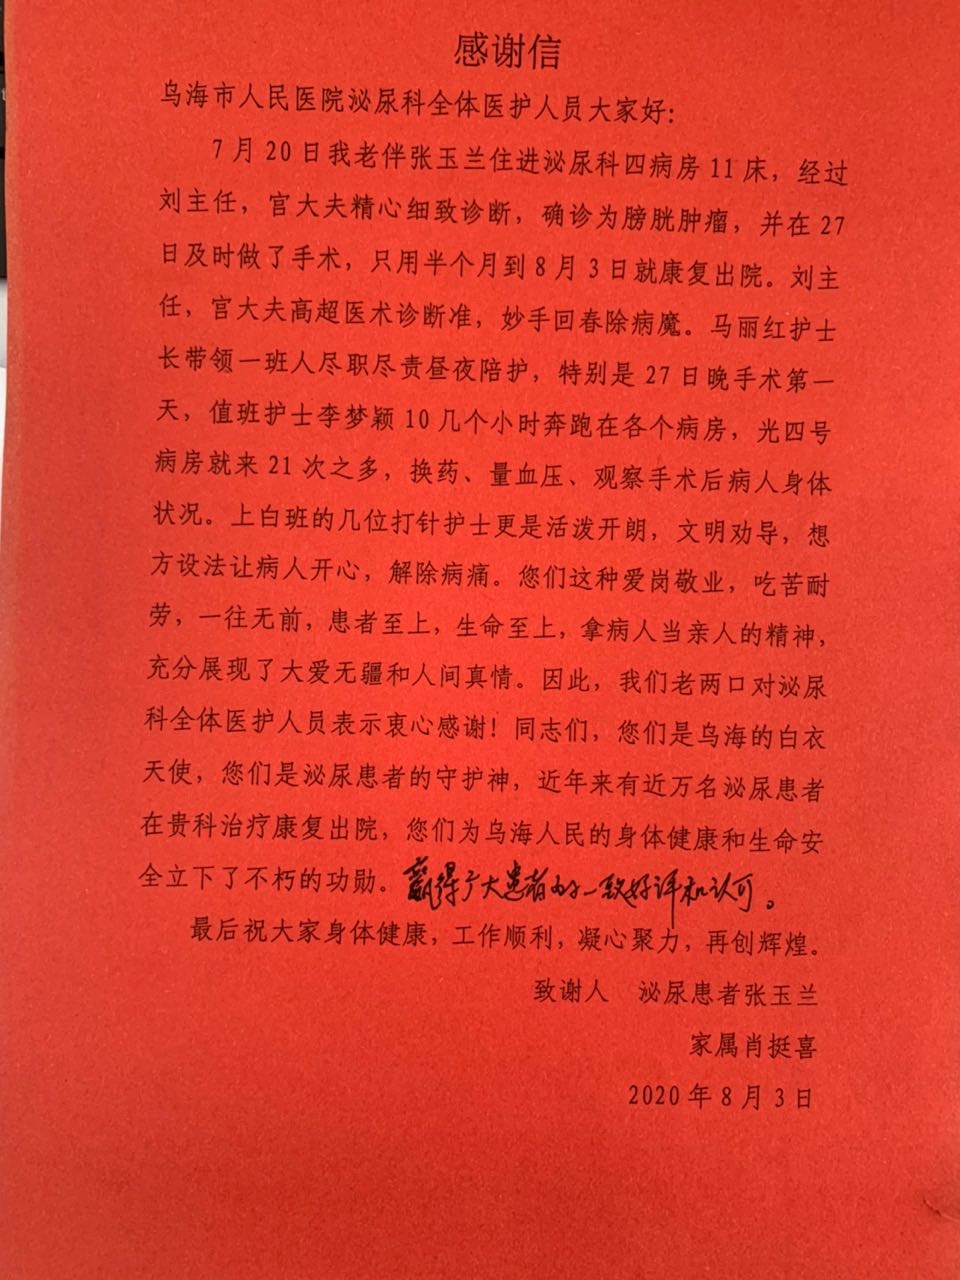 感谢信
乌海市人民医院泌尿科全体医护人员大家好:
7月20日我老伴张玉兰住进泌尿科四病房11床，经过
刘主任，官大夫精心细致诊断，确诊为膀胱肿瘤，并在27
日及时做了手术，只用半个月到8月3日就康复出院。刘主
任，官大夫高超医术诊断准，妙手回春除病魔。马丽红护士
长带领一班人尽职尽责昼夜陪护，特别是27日晚手术第一
天，值班护士李梦颖10几个小时奔跑在各个病房，光四号
病房就来21次之多，换药、量血压、观察手术后病人身体
状况。上白班的几位打针护士更是活泼开朗，文明劝导，想
方设法让病人开心，解除病痛。您们这种爱岗敬业，吃苦耐
劳，一往无前，患者至上，生命至上，拿病人当亲人的精神，
充分展现了大爱无疆和人间真情。因此，我们老两口对泌尿
科全体医护人员表示衷心感谢！同志们，您们是乌海的白衣
天使，您们是泌尿患者的守护神，近年来有近万名泌尿患者
在贵科治疗康复出院，您们为乌海人民的身体健康和生命安
全立下了不朽的功勋。赢得广大患者的一致好评和认可。
最后祝大家身体健康，工作顺利，凝心聚力，再创辉煌。
致谢人 泌尿患者张玉兰
家属肖挺喜
2020年8月3日